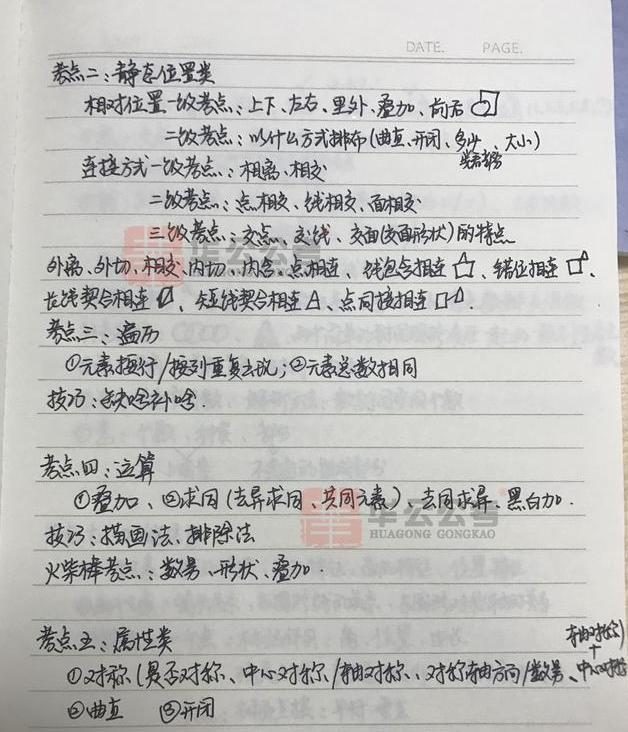 DATE. PAGE.
考点二：静态位置类
相对位置一级考点：上下、左右、里外、叠加、前后
二级考点：以什么方式排布(曲直、开闭、多少、大小)
连接方式一级考点：相离、相交
二级考点：点相交、线相交、面相交
三级考点：交点、交线、交面(交面形状)的特点
华云公考
外离、外切、相交、内切、内含、点相连、线包含相连、错位相连、
长线契合相连、短线契合相连、点间接相连.
考点三：遍历
①元素按行/按列重复出现；②元素总数相同
技巧：缺啥补啥.
考点四：运算
①叠加、②求同(去异求同、共同元素)、去同求异、黑白加.
华云公考
HUAGONG GONGKAO
技巧：描画法、排除法
火柴棒考点：数量、形状、叠加.
考点五：属性类
轴对称
+
①对称(是否对称、中心对称/轴对称、对称轴方向/数量、中心对称
②曲直 ③开闭